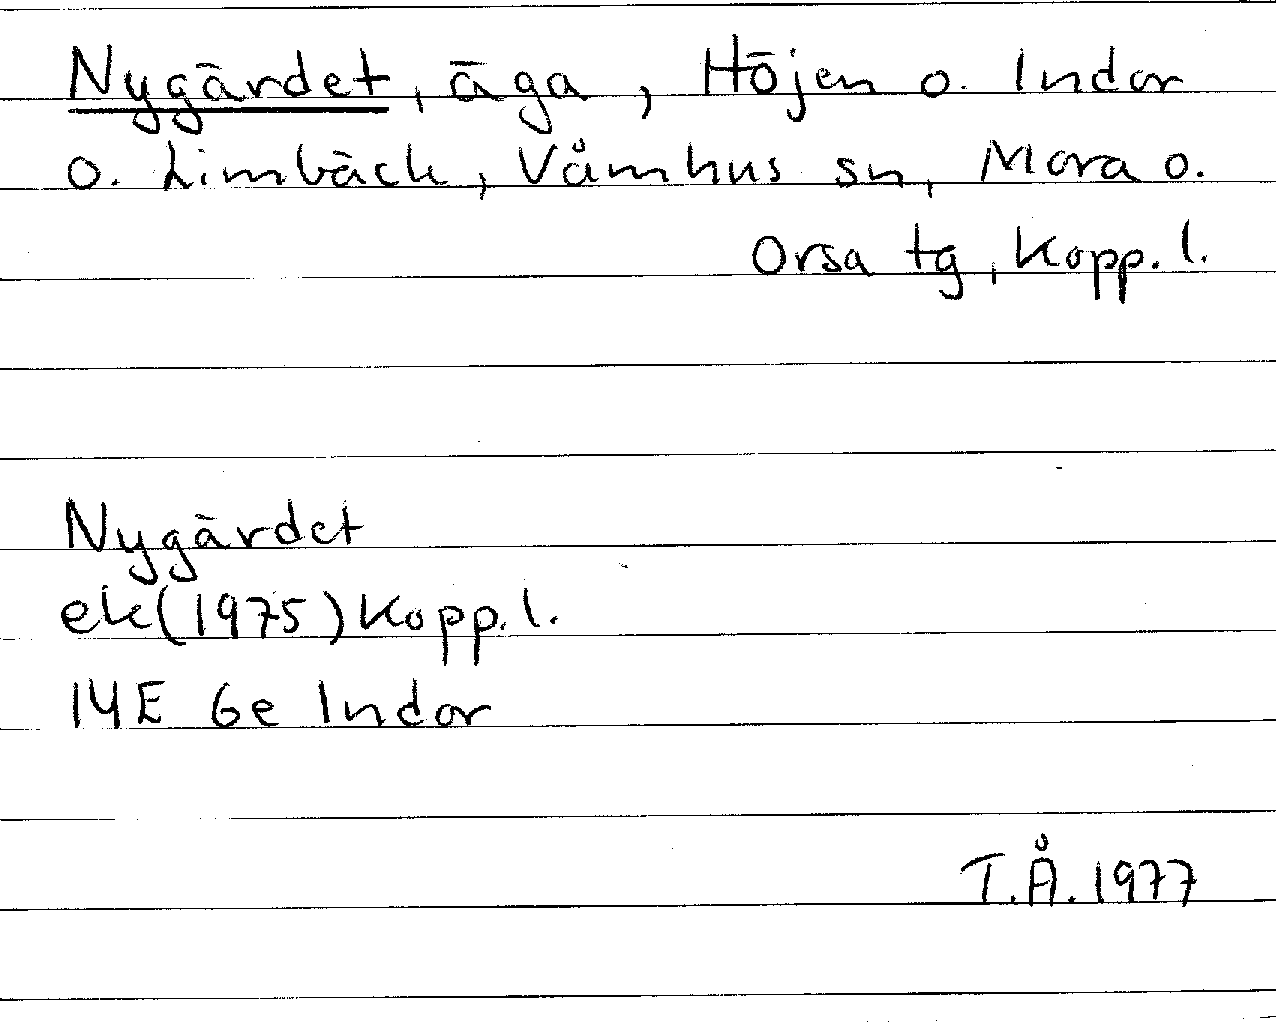 Nygärdet, äga, Höjen o. Indor
o. Limbäck, Våmhus sn, Mora o.
Orsa tg, Kopp. l.
Nygärdet
ek (1975) Kopp. l.
14E 6e Indor
T.Å. 1977